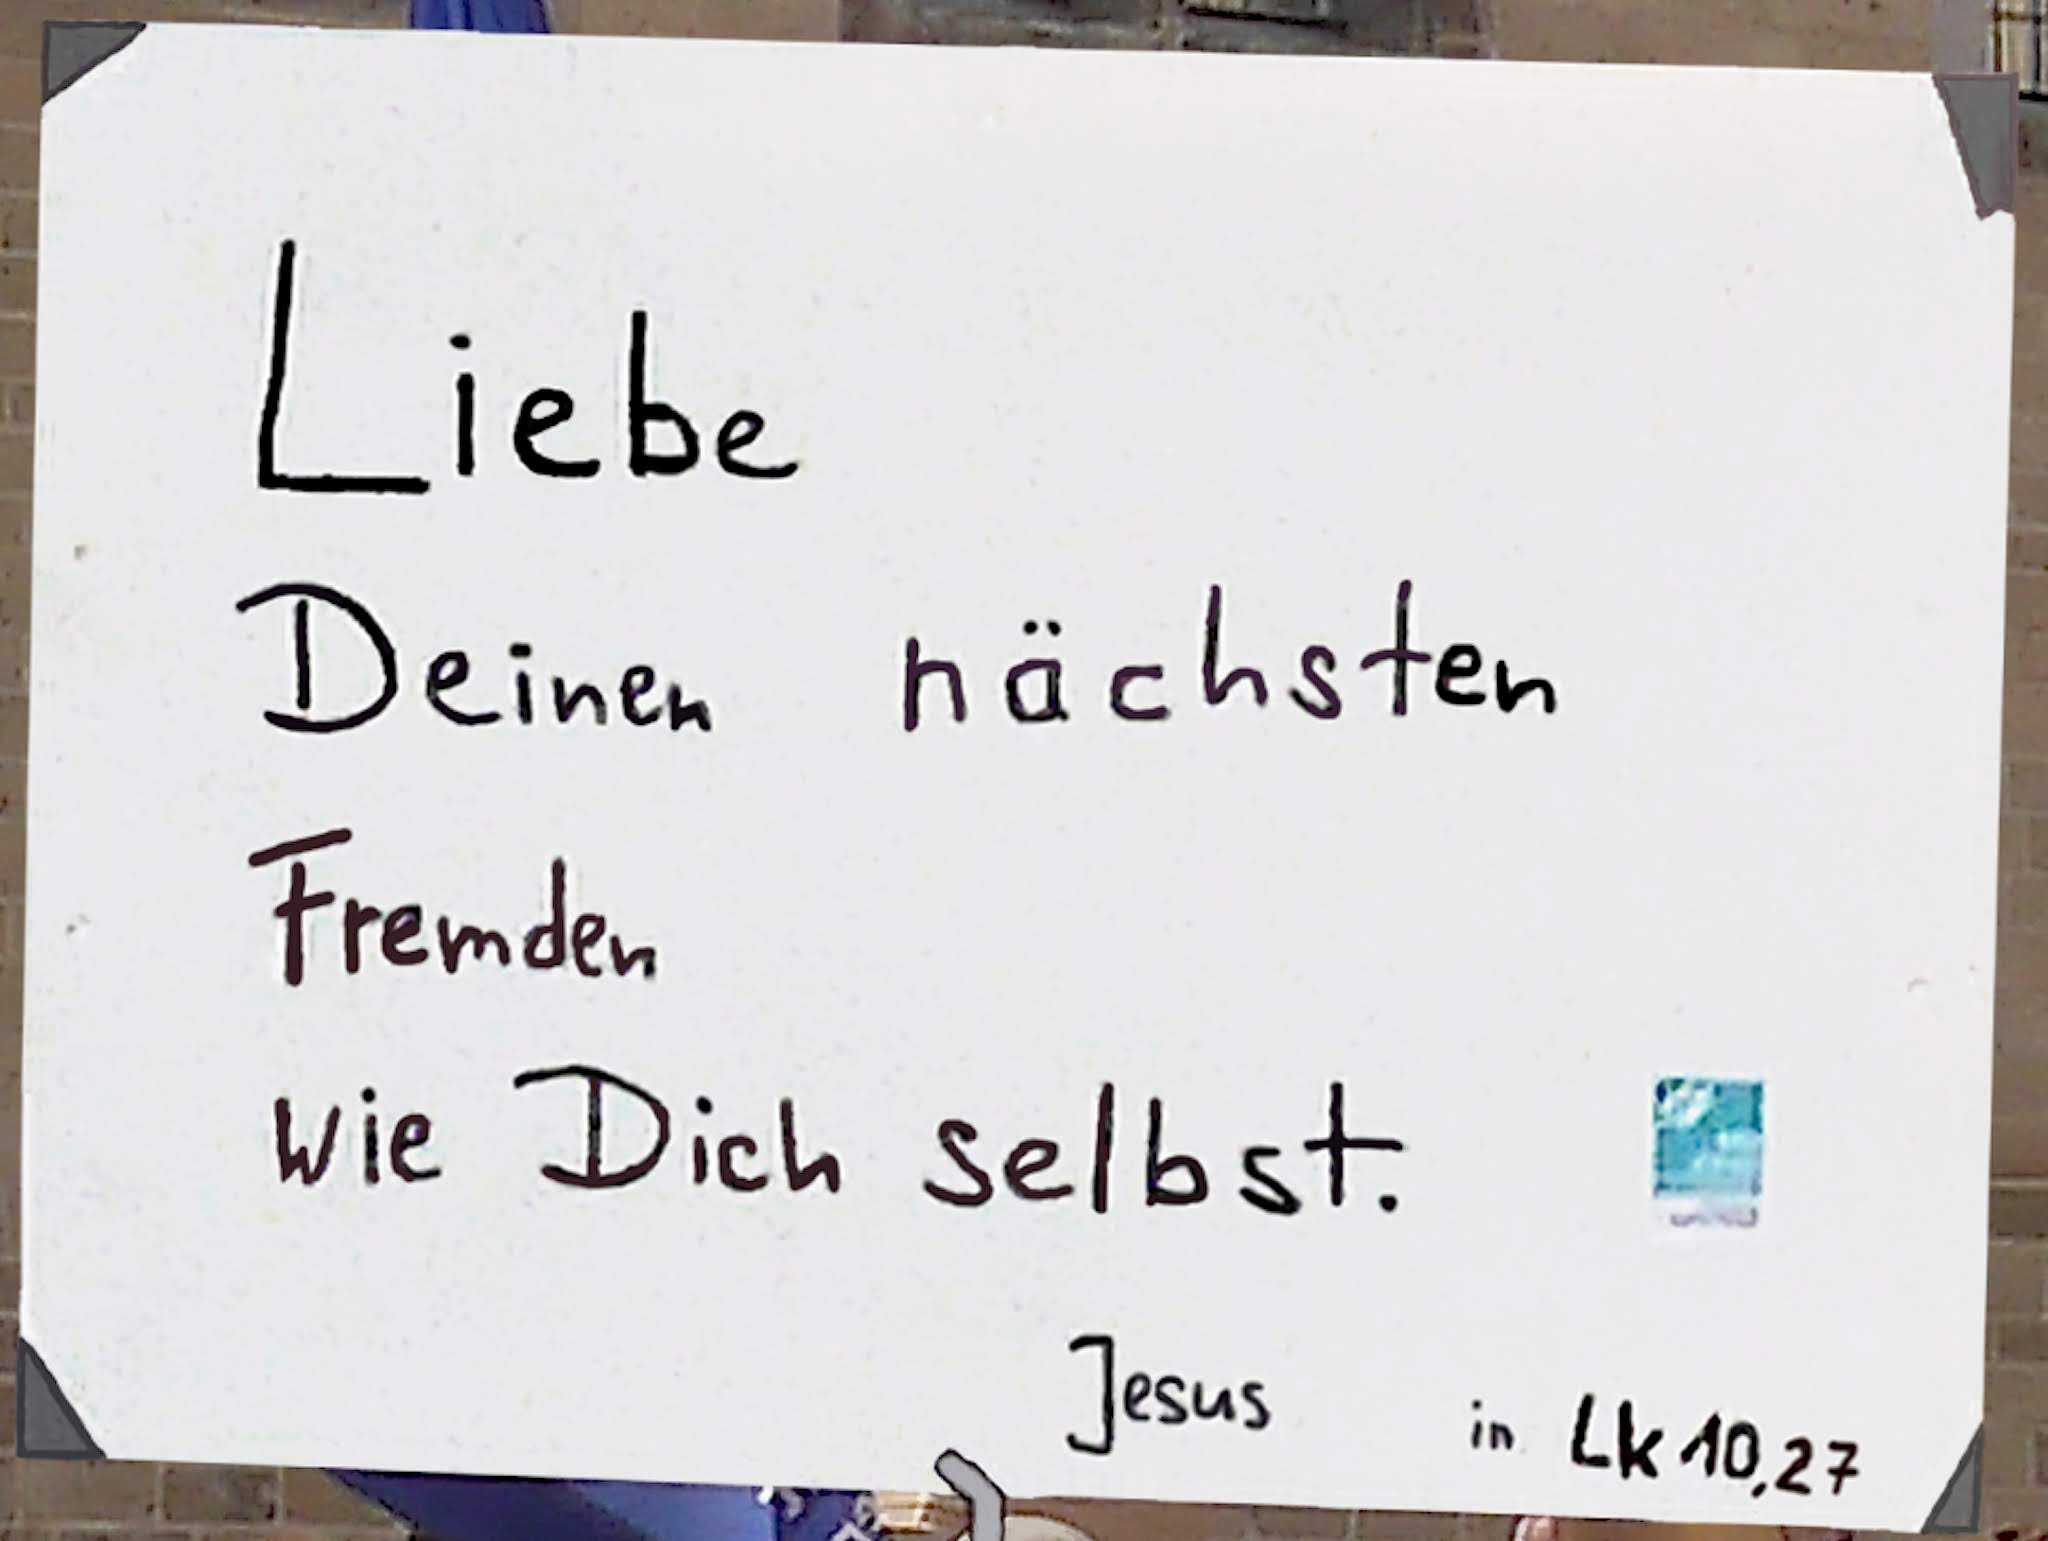 Liebe
Deinen nächsten
Fremden
wie Dich selbst.
Jesus in Lk 10,27